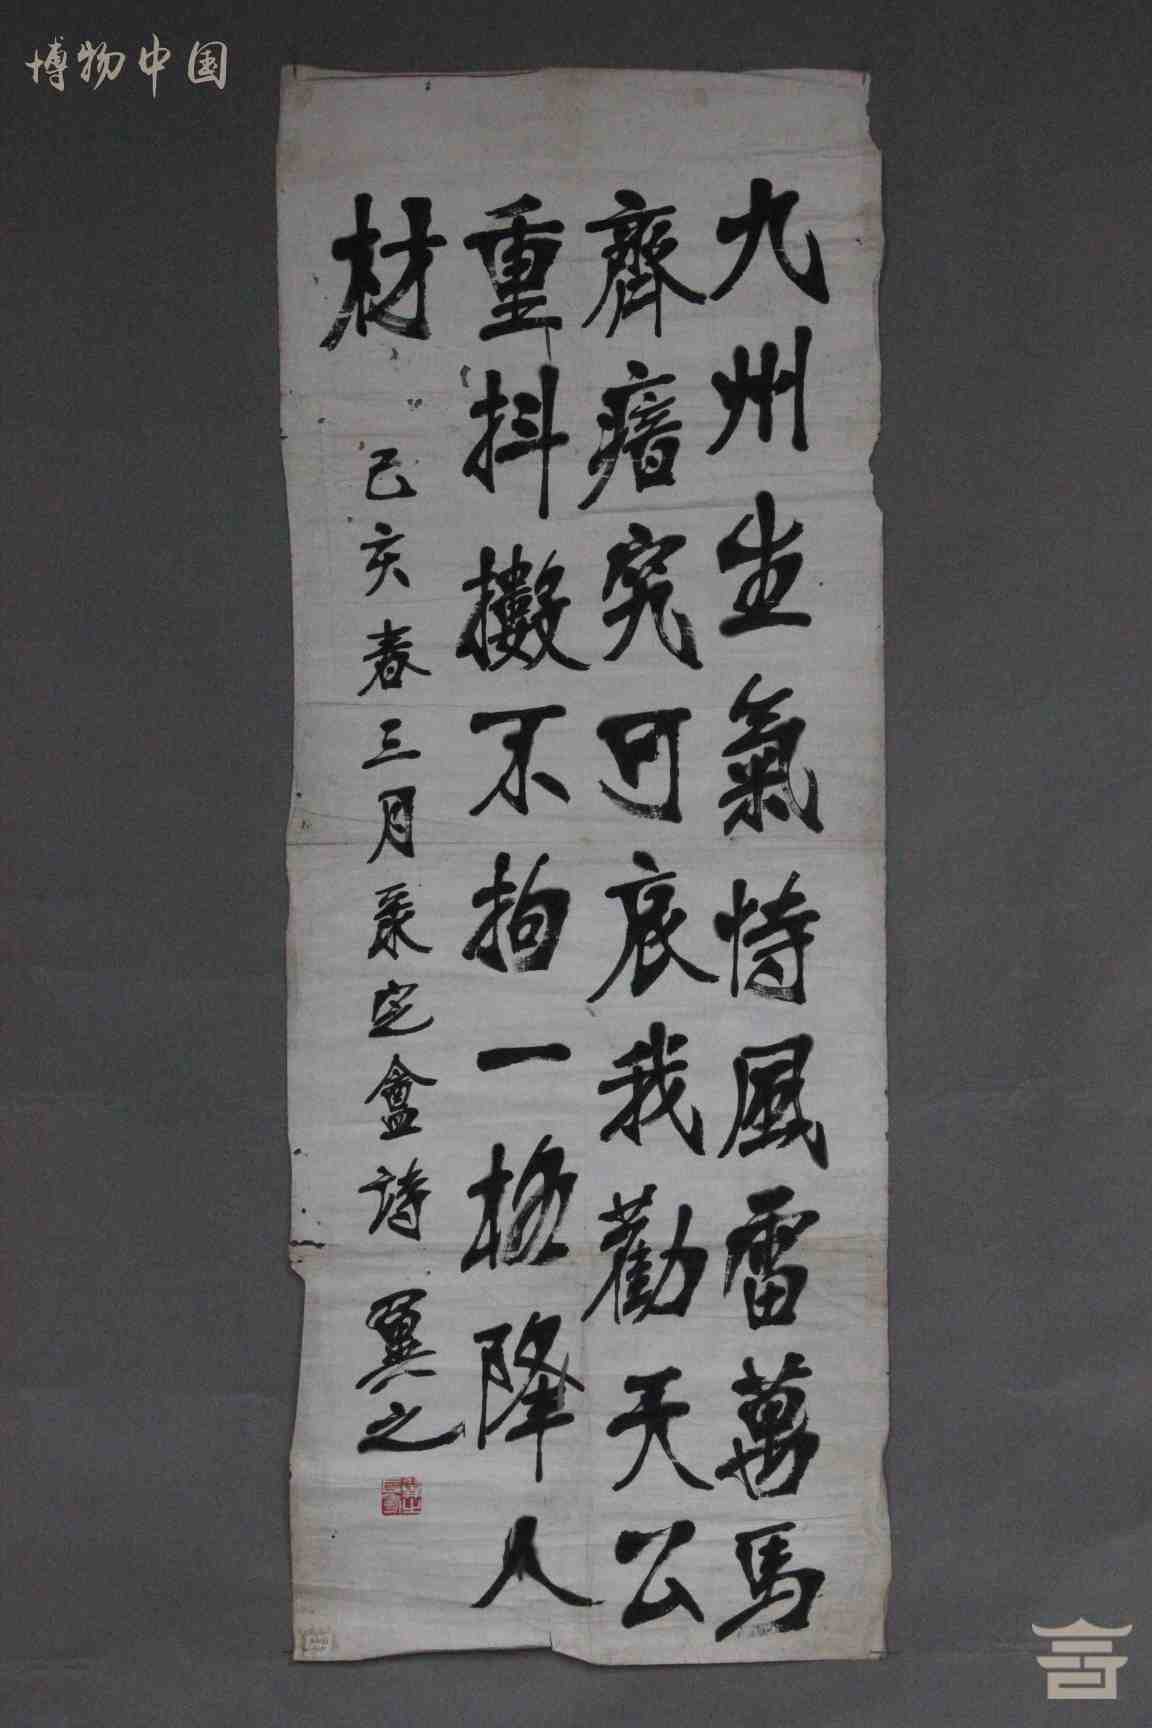 博物中国
九州生氣恃風雷萬馬
齊瘖究可哀我勸天公
重抖擻不拘一格降人
材
己亥春三月录定盦詩
翼之